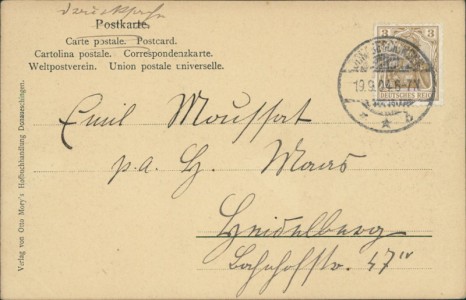 Postkarte.
Carte postale. Postcard.
Cartolina postale. Correspondenzkarte.
Weltpostverein. Union postale universelle.
3 3
DEUTSCHES REICH
19.9.04.6-7N.
* b
Emil Moussat
p. a. H. Maas
Heidelberg
Bahnhofstr. 47 IV
Verlag von Otto Mory's Hofbuchhandlung Donaueschingen.